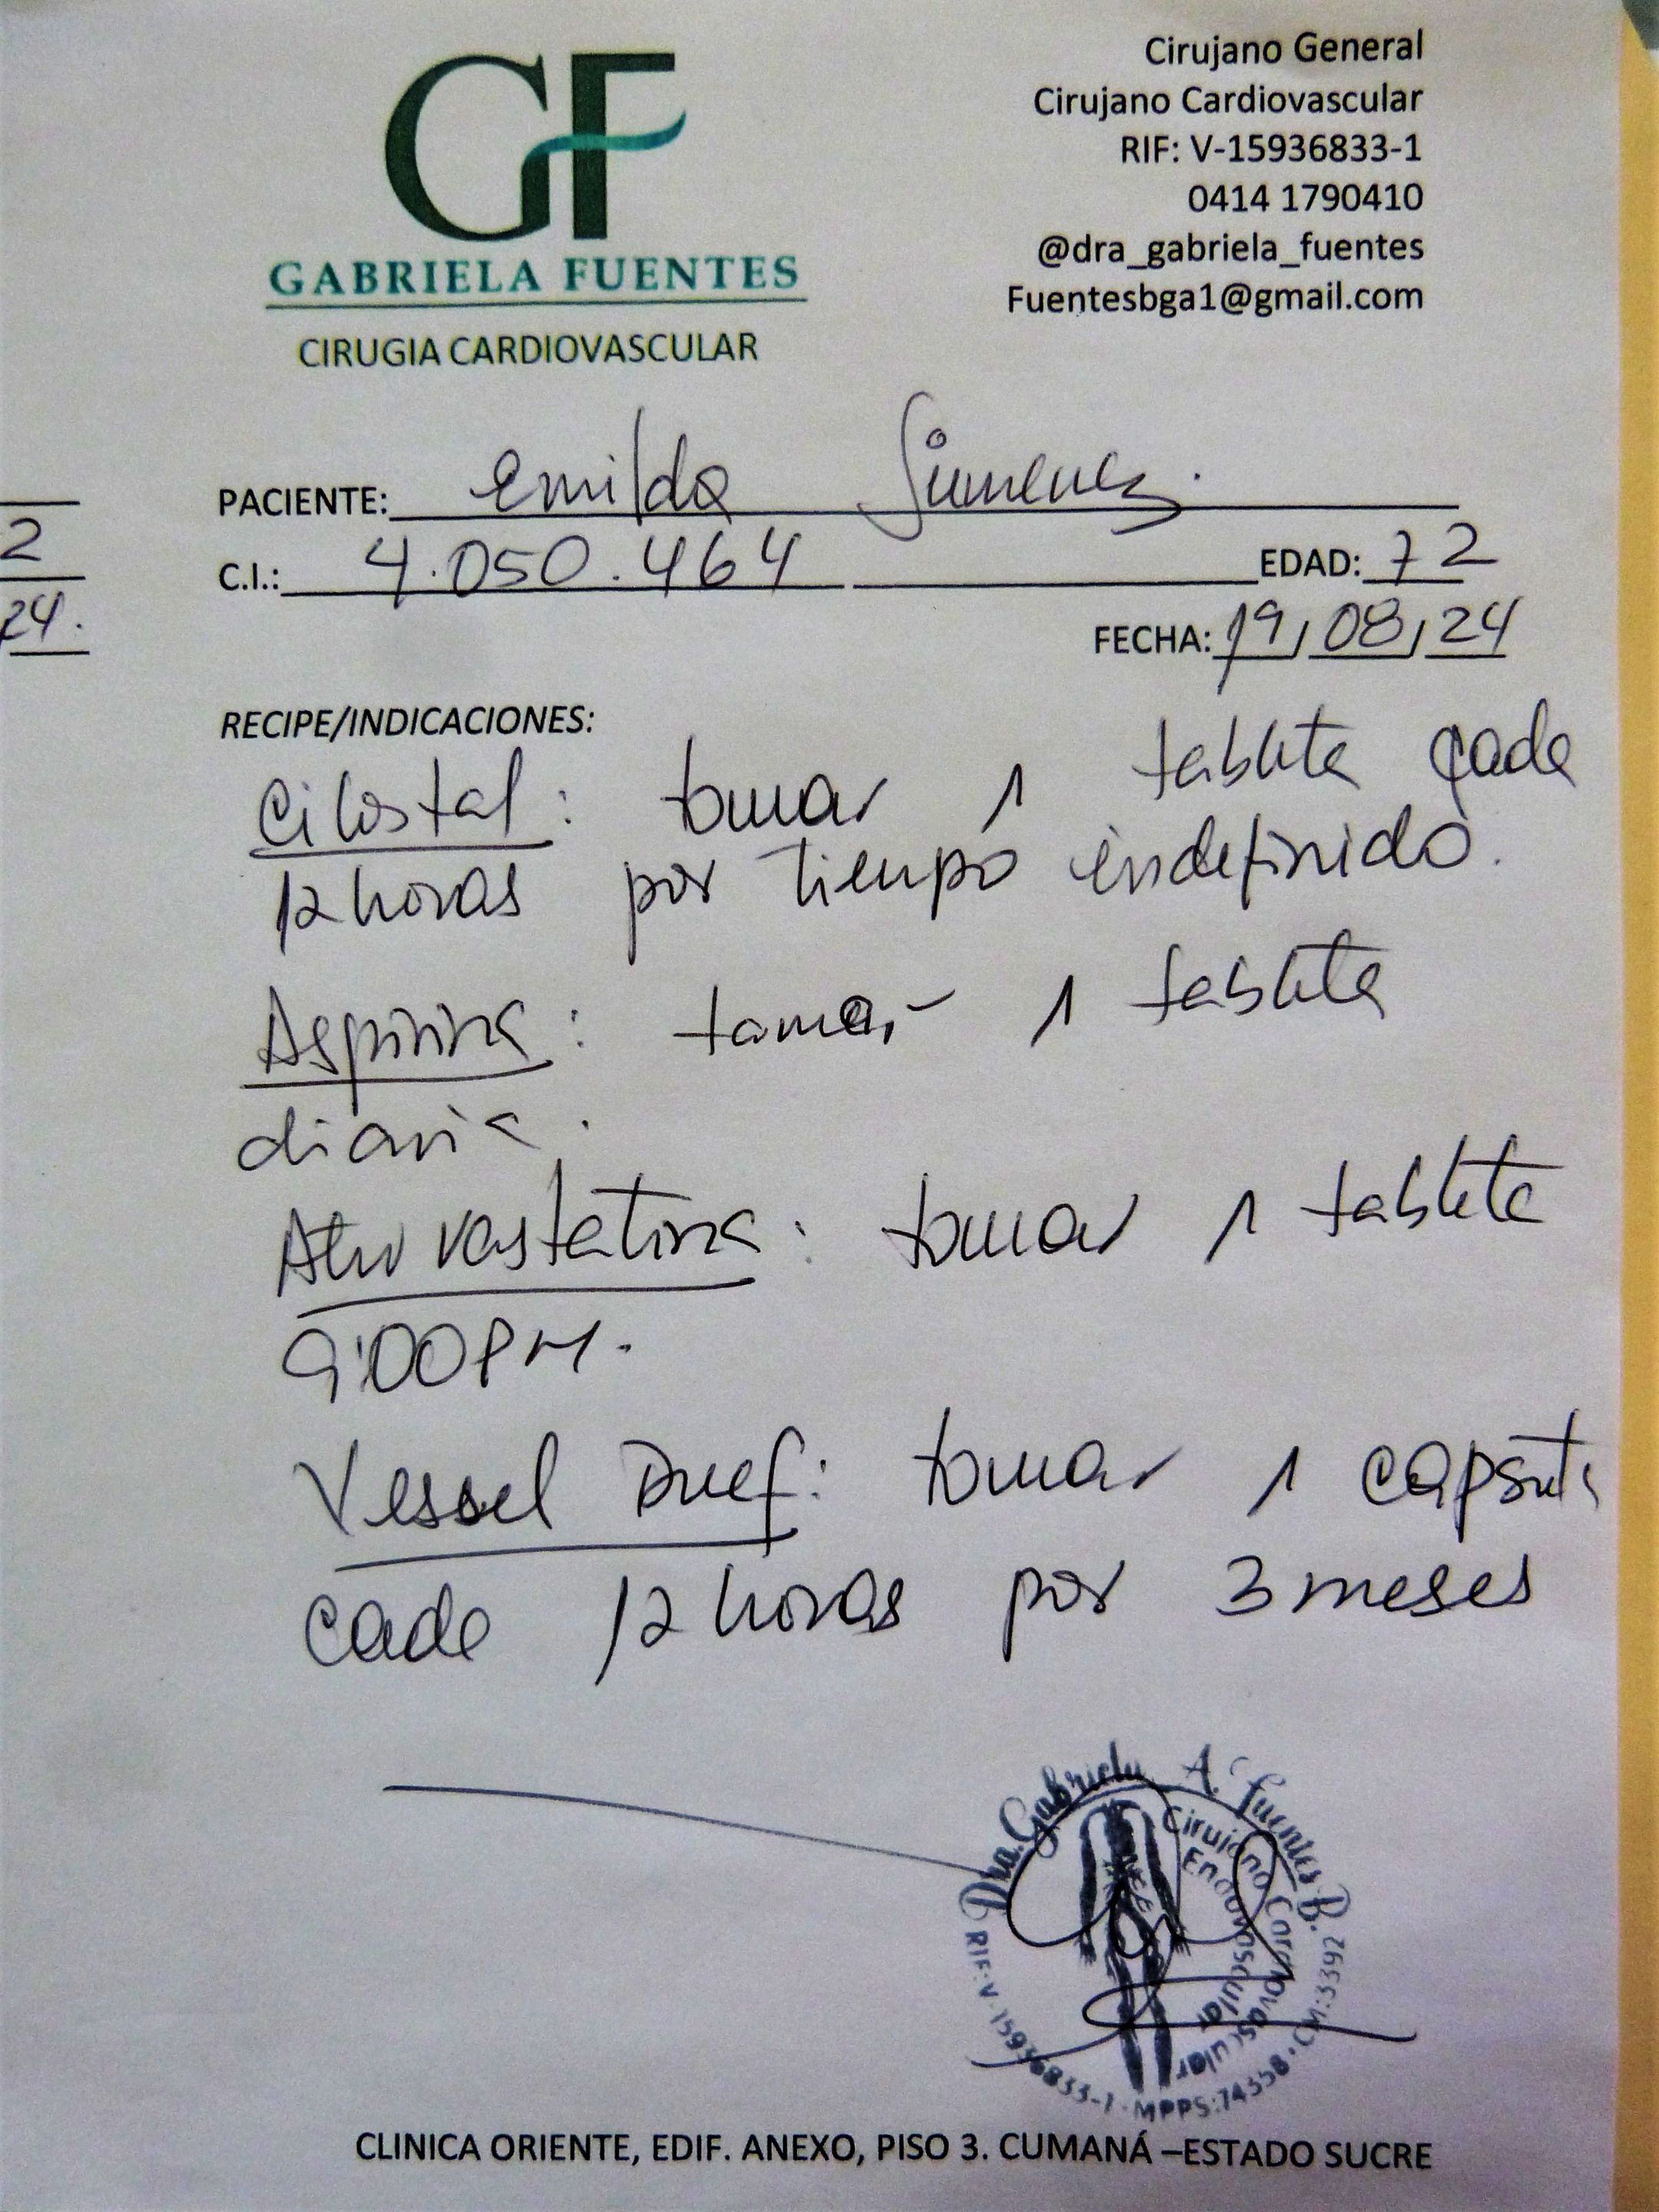 GF
GABRIELA FUENTES
CIRUGIA CARDIOVASCULAR
Cirujano General
Cirujano Cardiovascular
RIF: V-15936833-1
0414 1790410
@dra_gabriela_fuentes
Fuentesbga1@gmail.com
2
24.
PACIENTE: Emilda Jimenez.
C.I.: 4.050.464 EDAD: 72
FECHA: 19/08/24
RECIPE/INDICACIONES:
Cilostal: tomar 1 tableta cada
12 horas por tiempo indefinido.
Aspirina: tomar 1 tableta
diaria.
Atorvastatina: tomar 1 tableta
9:00 PM.
Vessel Duef: tomar 1 capsula
cada 12 horas por 3 meses
Dra. Gabriela A. Fuentes B.
Cirujano Cardiovascular
Endovascular
RIF: V-15936833-1 · MPPS: 74358 · CM: 3392
CLINICA ORIENTE, EDIF. ANEXO, PISO 3. CUMANÁ –ESTADO SUCRE